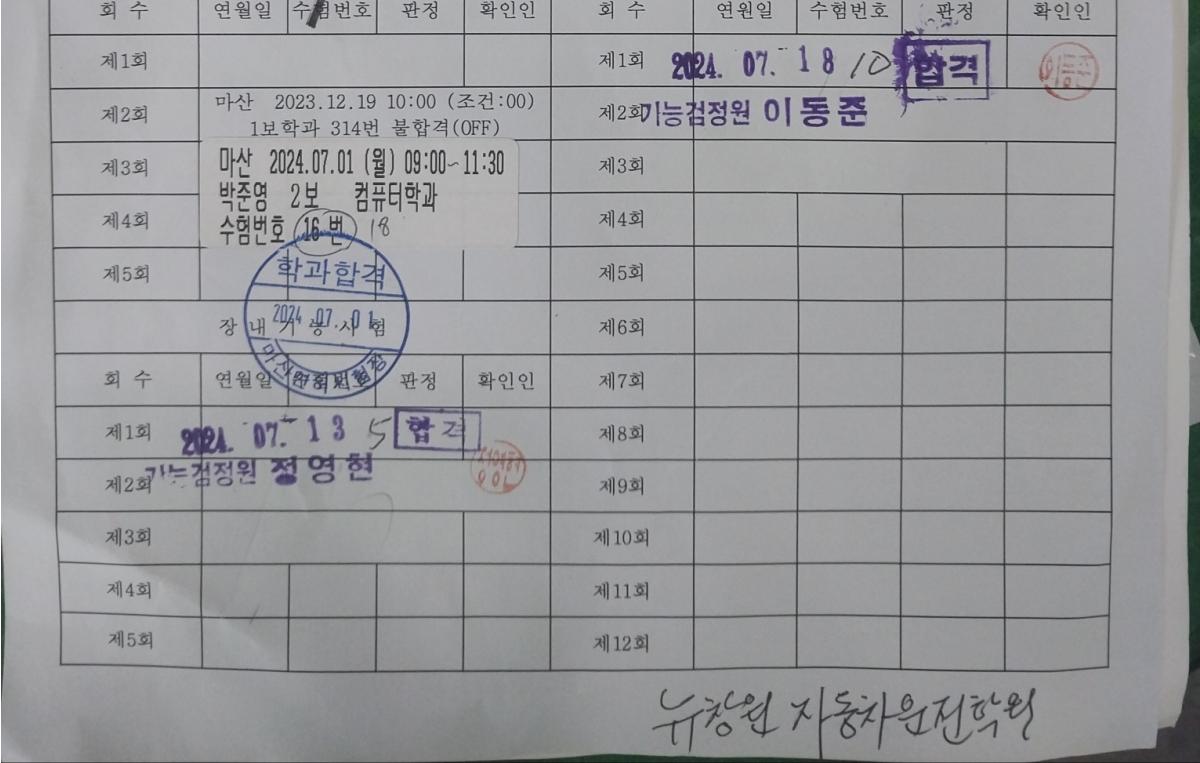 회 수 연월일 수험번호 판정 확인인 회 수 연원일 수험번호 판정 확인인
제1회 제1회 2024. 07. 18 10 합격
제2회 마산 2023.12.19 10:00 (조건:00) 제2회 기능검정원 이동준
1보학과 314번 불합격(OFF)
제3회 마산 2024.07.01 (월) 09:00~11:30 제3회
박준영 2보 컴퓨터학과
제4회 수험번호 16번 18 제4회
제5회 학과합격 제5회
장 내 기 능 시 험 2024 07 01 제6회
마산운전면허시험장
회 수 연월일 수험번호 판정 확인인 제7회
제1회 2024. 07. 13 5 합격 제8회
제2회 기능검정원 정영현 제9회
제3회 제10회
제4회 제11회
제5회 제12회
뉴창원 자동차운전학원